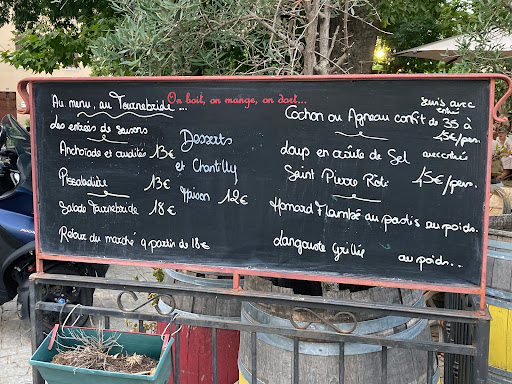 Au menu, au Tournebride...
On boit, on mange, on dort...
Les entrées de saisons
Anchoïade et crudités 13€
Pissaladière 13€
Salade Tournebride 18€
Retour du marché à partir de 18€
Desserts
et Chantilly
Maison 12€
Cochon ou Agneau confit de 35 à
45€/pers.
Loup en croûte de Sel
Saint Pierre Rôti 45€/pers.
Homard Flambé au pastis au poids.
Langouste Grillée au poids...